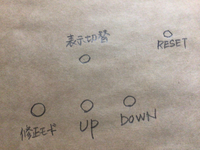 表示切替
RESET
修正モード UP DOWN